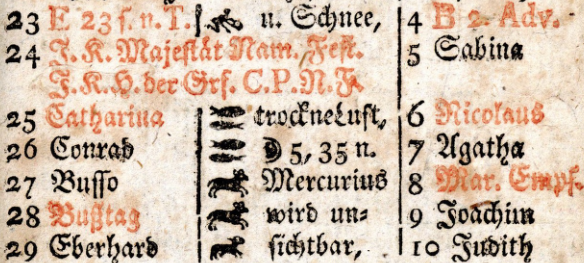 23 E 23 s. n. T. u. Schnee, 4 B 2. Adv.
24 J. K. Majestät Nam. Fest. 5 Sabina
J. K. H. der Grf. C. P. N. F.
25 Catharina trockne Luft, 6 Nicolaus
26 Conrad 5, 35 n. 7 Agatha
27 Busso Mercurius 8 Mar. Empf.
28 Bußtag wird un= 9 Joachim
29 Eberhard sichtbar, 10 Judith